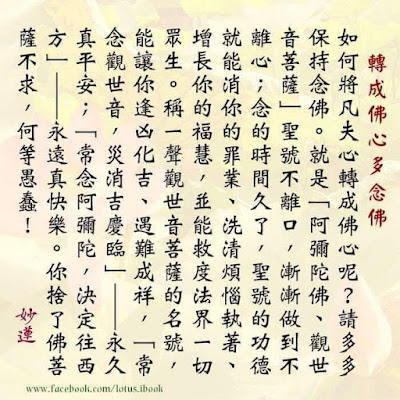 轉成佛心多念佛
如何將凡夫心轉成佛心呢？請多多
保持念佛。就是「阿彌陀佛、觀世
音菩薩」聖號不離口，漸漸做到不
離心；念的時間久了，聖號的功德
就能消你的罪業、洗清煩惱執著、
增長你的福慧，並能救度法界一切
眾生。稱一聲觀世音菩薩的名號，
能讓你逢凶化吉、遇難成祥，「常
念觀世音，災消吉慶臨」——永久
真平安；「常念阿彌陀，決定往西
方」——永遠真快樂。你捨了佛菩
薩不求，何等愚蠢！
妙蓮
www.facebook.com/lotus.ibook